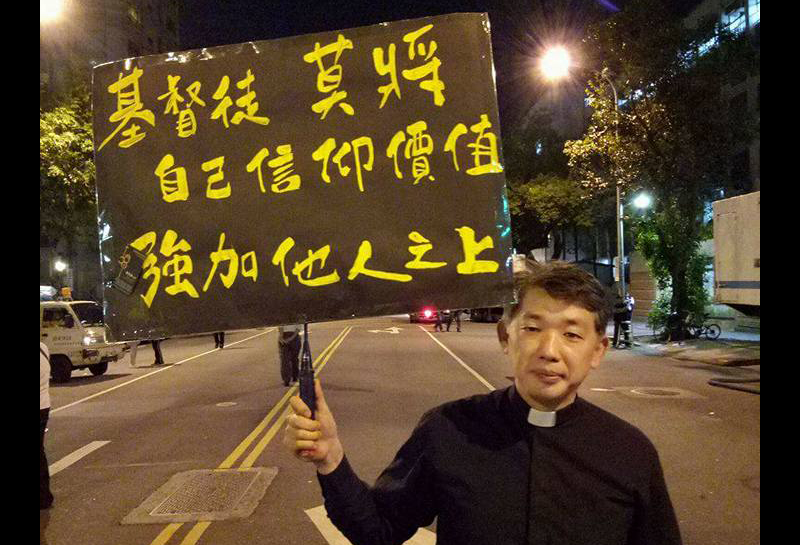 基督徒 莫將
自己信仰價值
強加他人之上